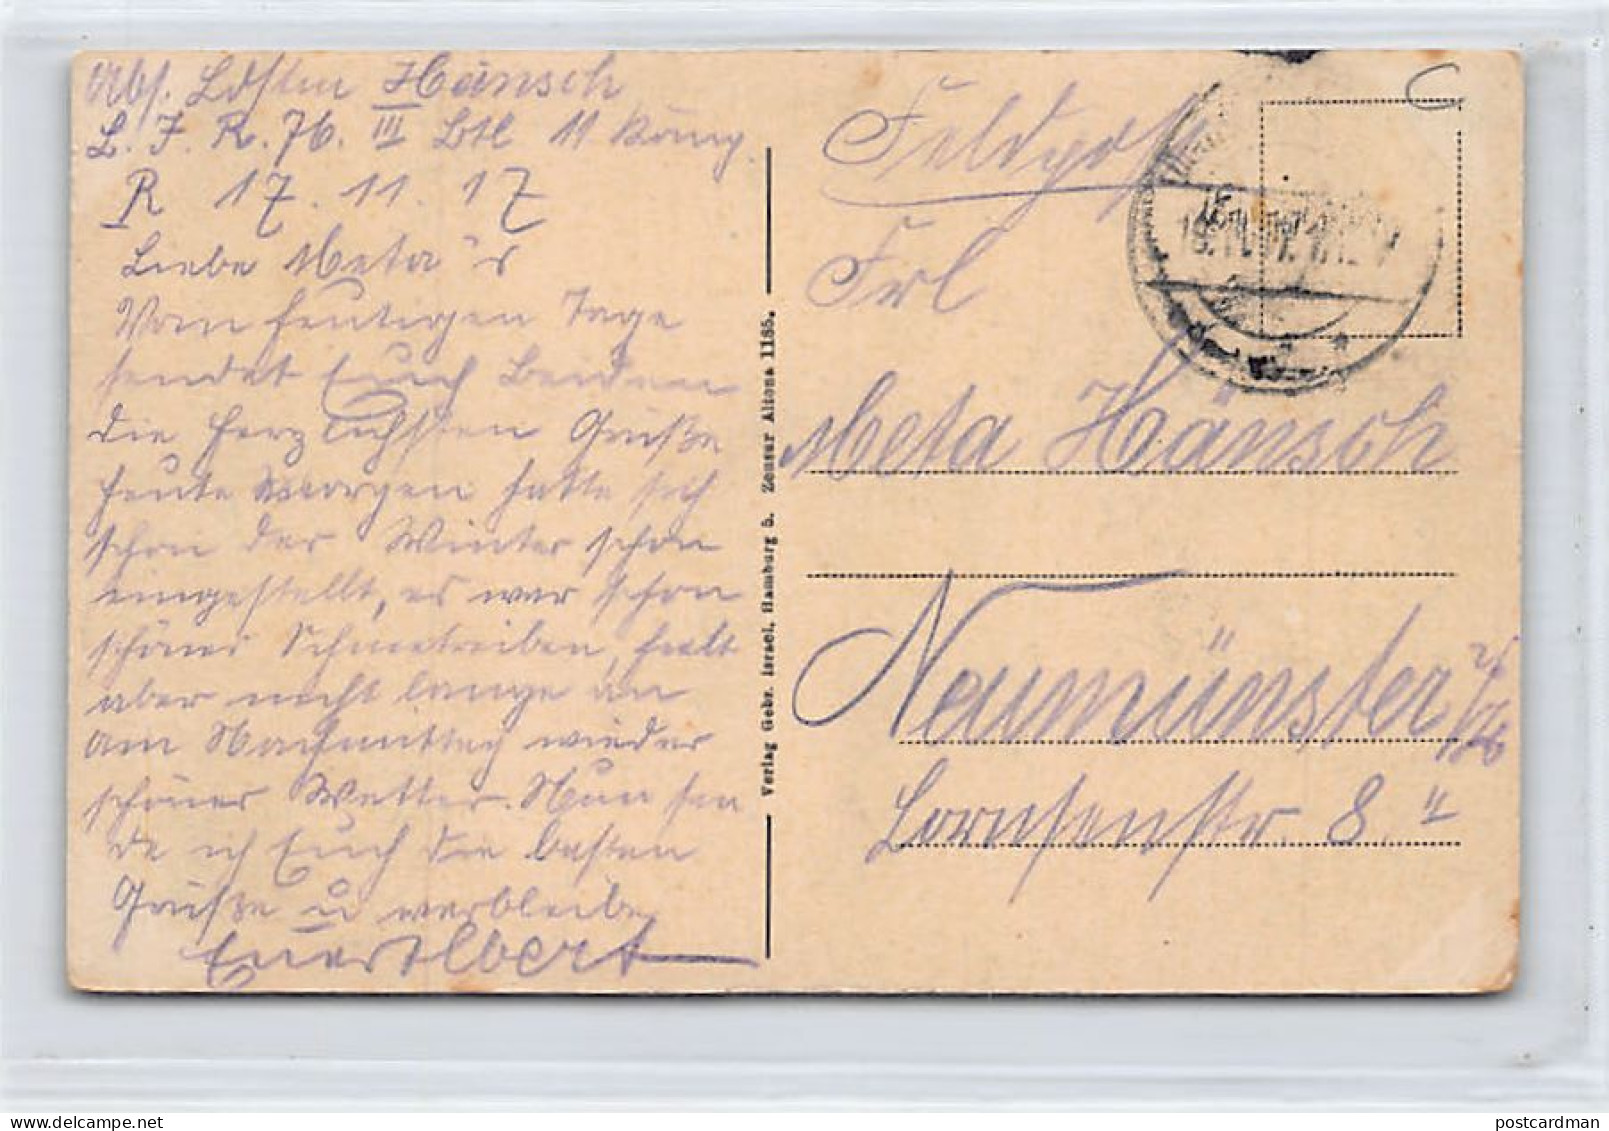 Abs. Ldstm Hänsch
L. I. R. 76. III Btl 11 Komp.
R 17. 11. 17
Liebe Meta's
Vom heutigen Tage
sendet Euch Beiden
die herzlichsten Grüße
heute Morgen hatte sich
schon der Winter schon
eingestellt, es war schon
schönes Schneetreiben, hielt
aber nicht lange an
am Nachmittag wieder
schönes Wetter. Nun sen
de ich Euch die besten
Grüße u verbleibe
Euer Albert
Verlag Gebr. Israel, Hamburg 5. Zensur Altona 1185.
Feldpost
Frl
Meta Hänsch
Neumünster
Lornsenstr. 8 II
postcardman